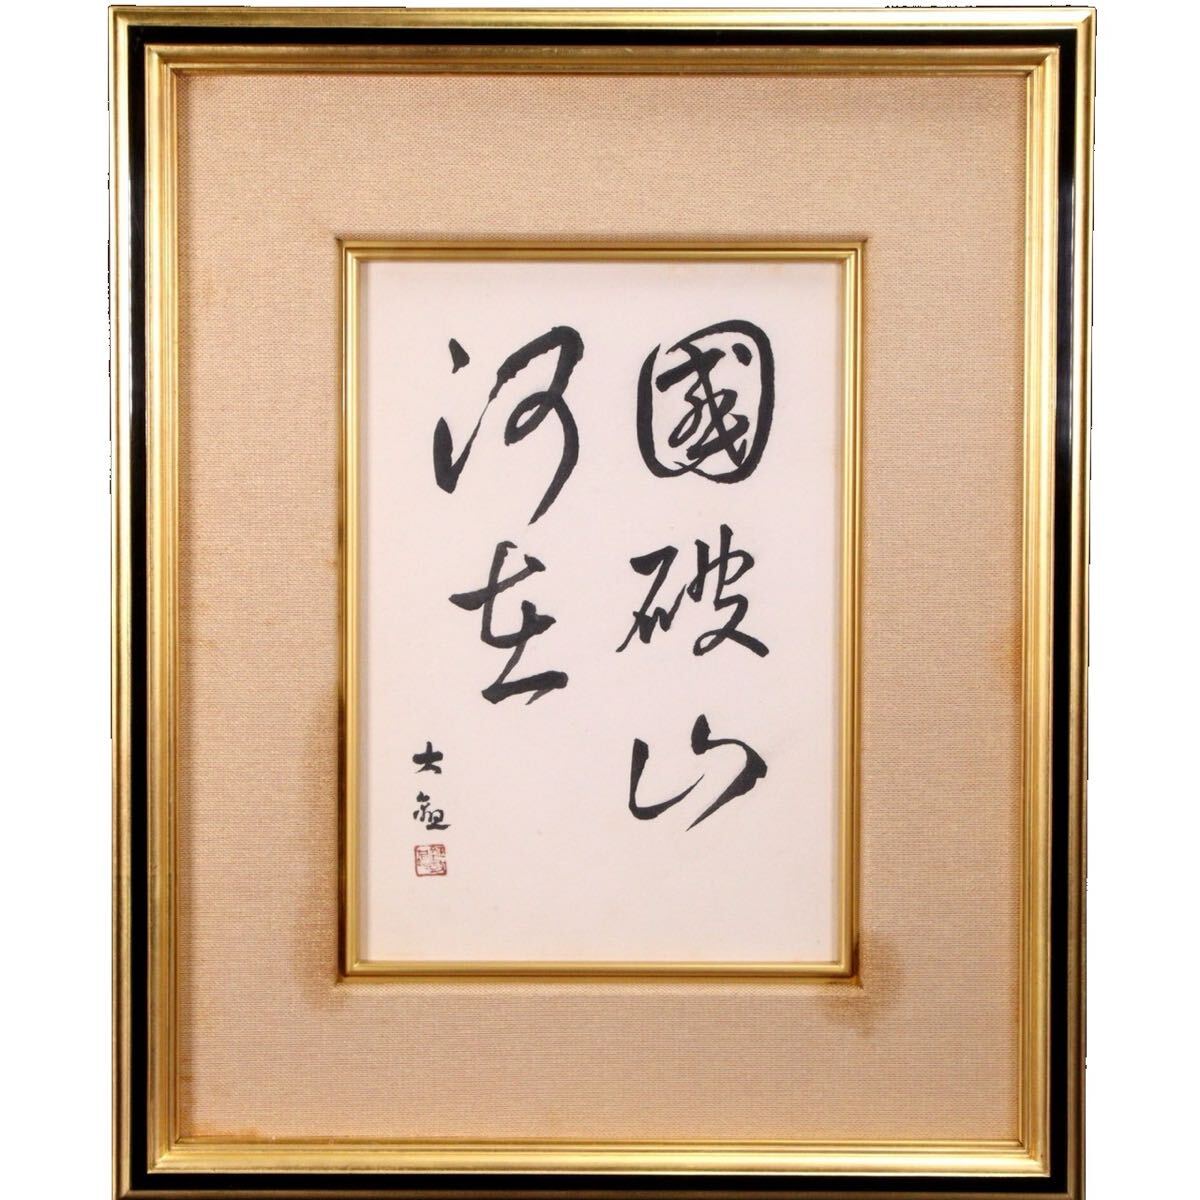 國破山
河在
大観